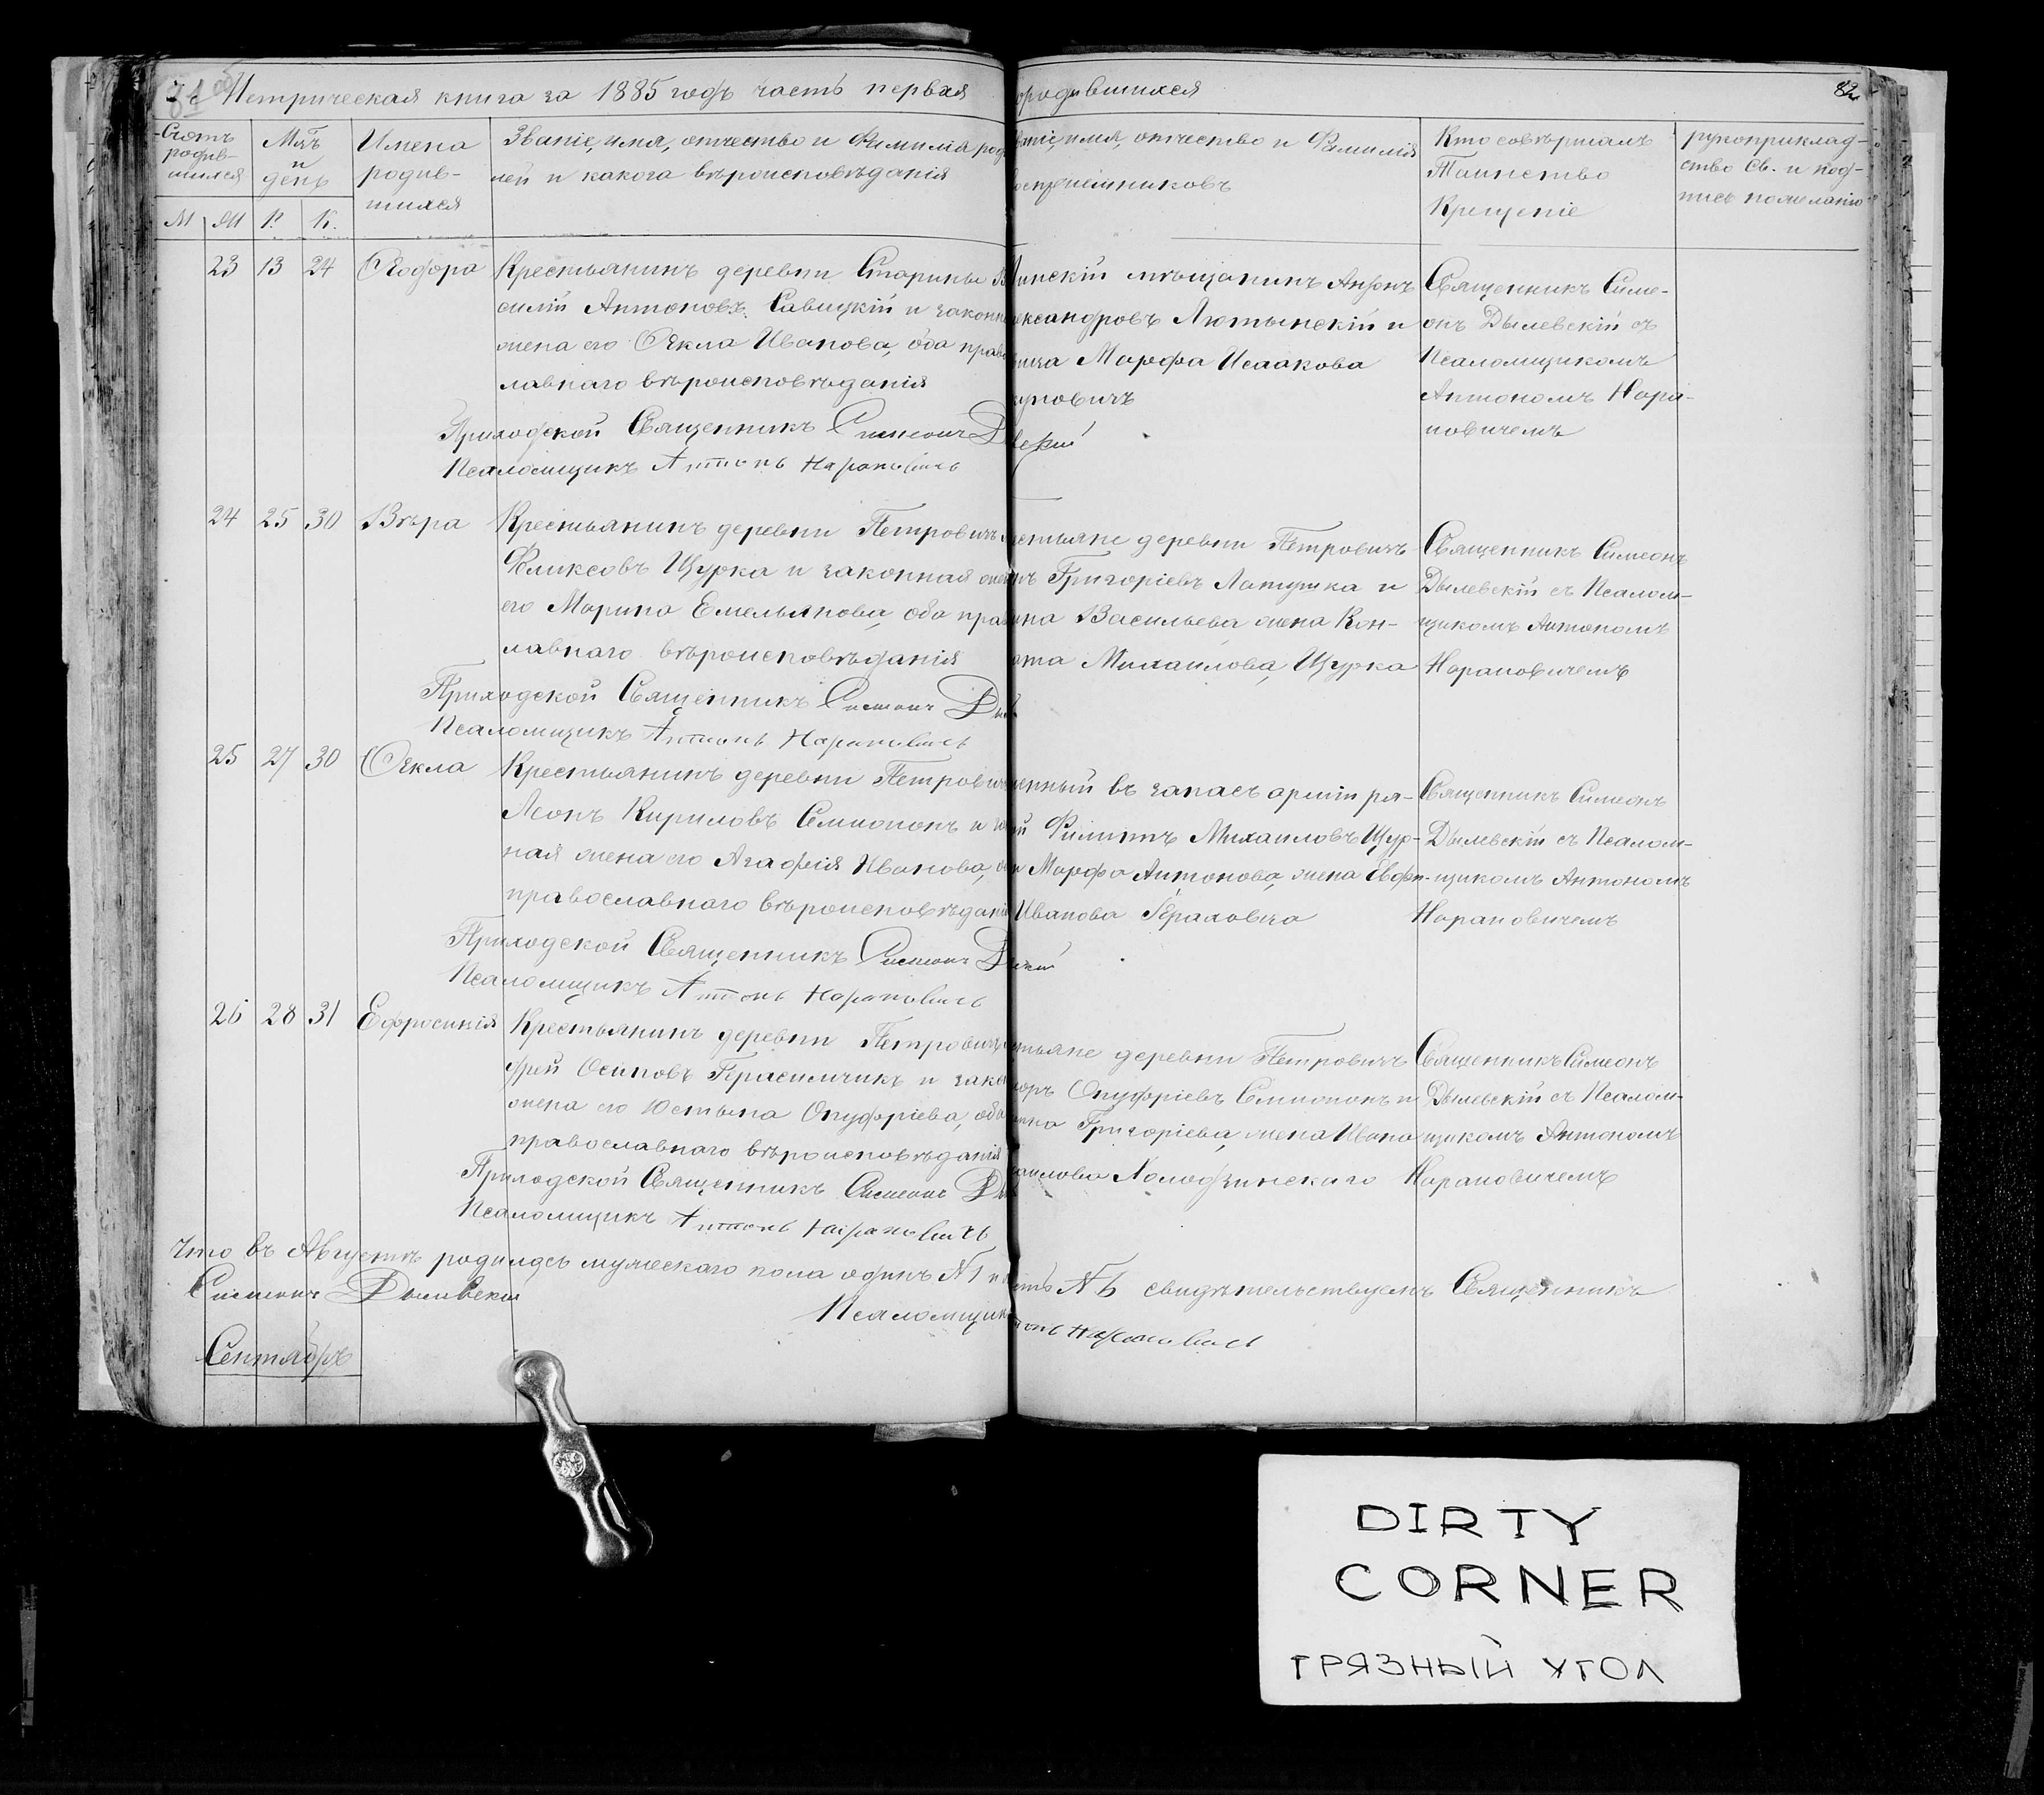 Метрическая книга за 1885 годъ часть первая
о родившихся
82
Счотъ
родив-
шихся
М. Ж. Р. К.
Мѣ-ъ
и
день
Имена
родив-
шихся
Званіе, имя, отчество и Фамилія род
лей и какога вѣроисповѣданія
имя, отчество и Фамилія
воспріемниковъ
Кто совѣршалъ
Таинство
Крещеніе
рукоприклад-
ство св. и под-
пись по желанію
23 13 24 Ѳеодора
Крестьянинъ деревни Старины Ва
силій Антоновъ Савицкій и законн
жена его Ѳекла Иванова, оба право
лавнаго вѣроисповѣданія
Минскій мѣщанинъ
лександровъ Лютынскій и
Марфа Исаакова
Священникъ Симе-
онъ Дылевскій съ
Псаломщикомъ
Антономъ Нара-
новичемъ
Приходской Священникъ Симеонъ Д
вскій
Псаломщикъ Антонъ Нарановичъ
24 25 30 Вѣра
Крестьянинъ деревни Петровичъ
Феликсовъ Щурка и законная жен
его Марина Емельянова, оба прав
лавнаго вѣроисповѣданія
естьяне деревни Петровичъ
Григоріевъ Латушка и
Васильева жена Кон-
рата Михаилова, Щурка
Священникъ Симеонъ
Дылевскій съ Псалом-
щикомъ Антономъ
Нарановичемъ
Приходской Священникъ Симеонъ Дыл
Псаломщикъ Антонъ Нарановичъ
25 27 30 Ѳекла
Крестьянинъ деревни Петрович
Леонъ Кириловъ Семионокъ и
ная жена его Агафія Иванова,
православнаго вѣроисповѣдані
ленный въ запасъ арміи ря-
й Филиппъ Михаиловъ Щур-
и Марфа Антонова, жена Евфи-
Иванова
Священникъ Симеонъ
Дылевскій съ Псалом-
щикомъ Антономъ
Нарановичемъ
Приходской Священникъ Симеонъ Д
Псаломщикъ Антонъ Нарановичъ
26 28 31 Ефросинія
Крестьянинъ деревни Петрович
дрей Осиповъ Герасимчикъ и зако
жена его Юстына Онуфріева, оба
православнаго вѣроисповѣданія
стьяне деревни Петровичъ
доръ Онуфріевъ Семионокъ и
Григоріева, жена Ивана
хаилова Холодзинскаго
Священникъ Симеонъ
Дылевскій съ Псалом-
щикомъ Антономъ
Нарановичемъ
Приходской Священникъ Симеонъ Ды
Псаломщикъ Антонъ Нарановичъ
Что въ Августѣ родилось мужескаго пола одинъ №1 и
№6 свидѣтельствуемъ Священникъ
Симеонъ Дылевскій
Псаломщик
тонъ Нарановичъ
Сентябрь
DIRTY
CORNER
ГРЯЗНЫЙ УГОЛ